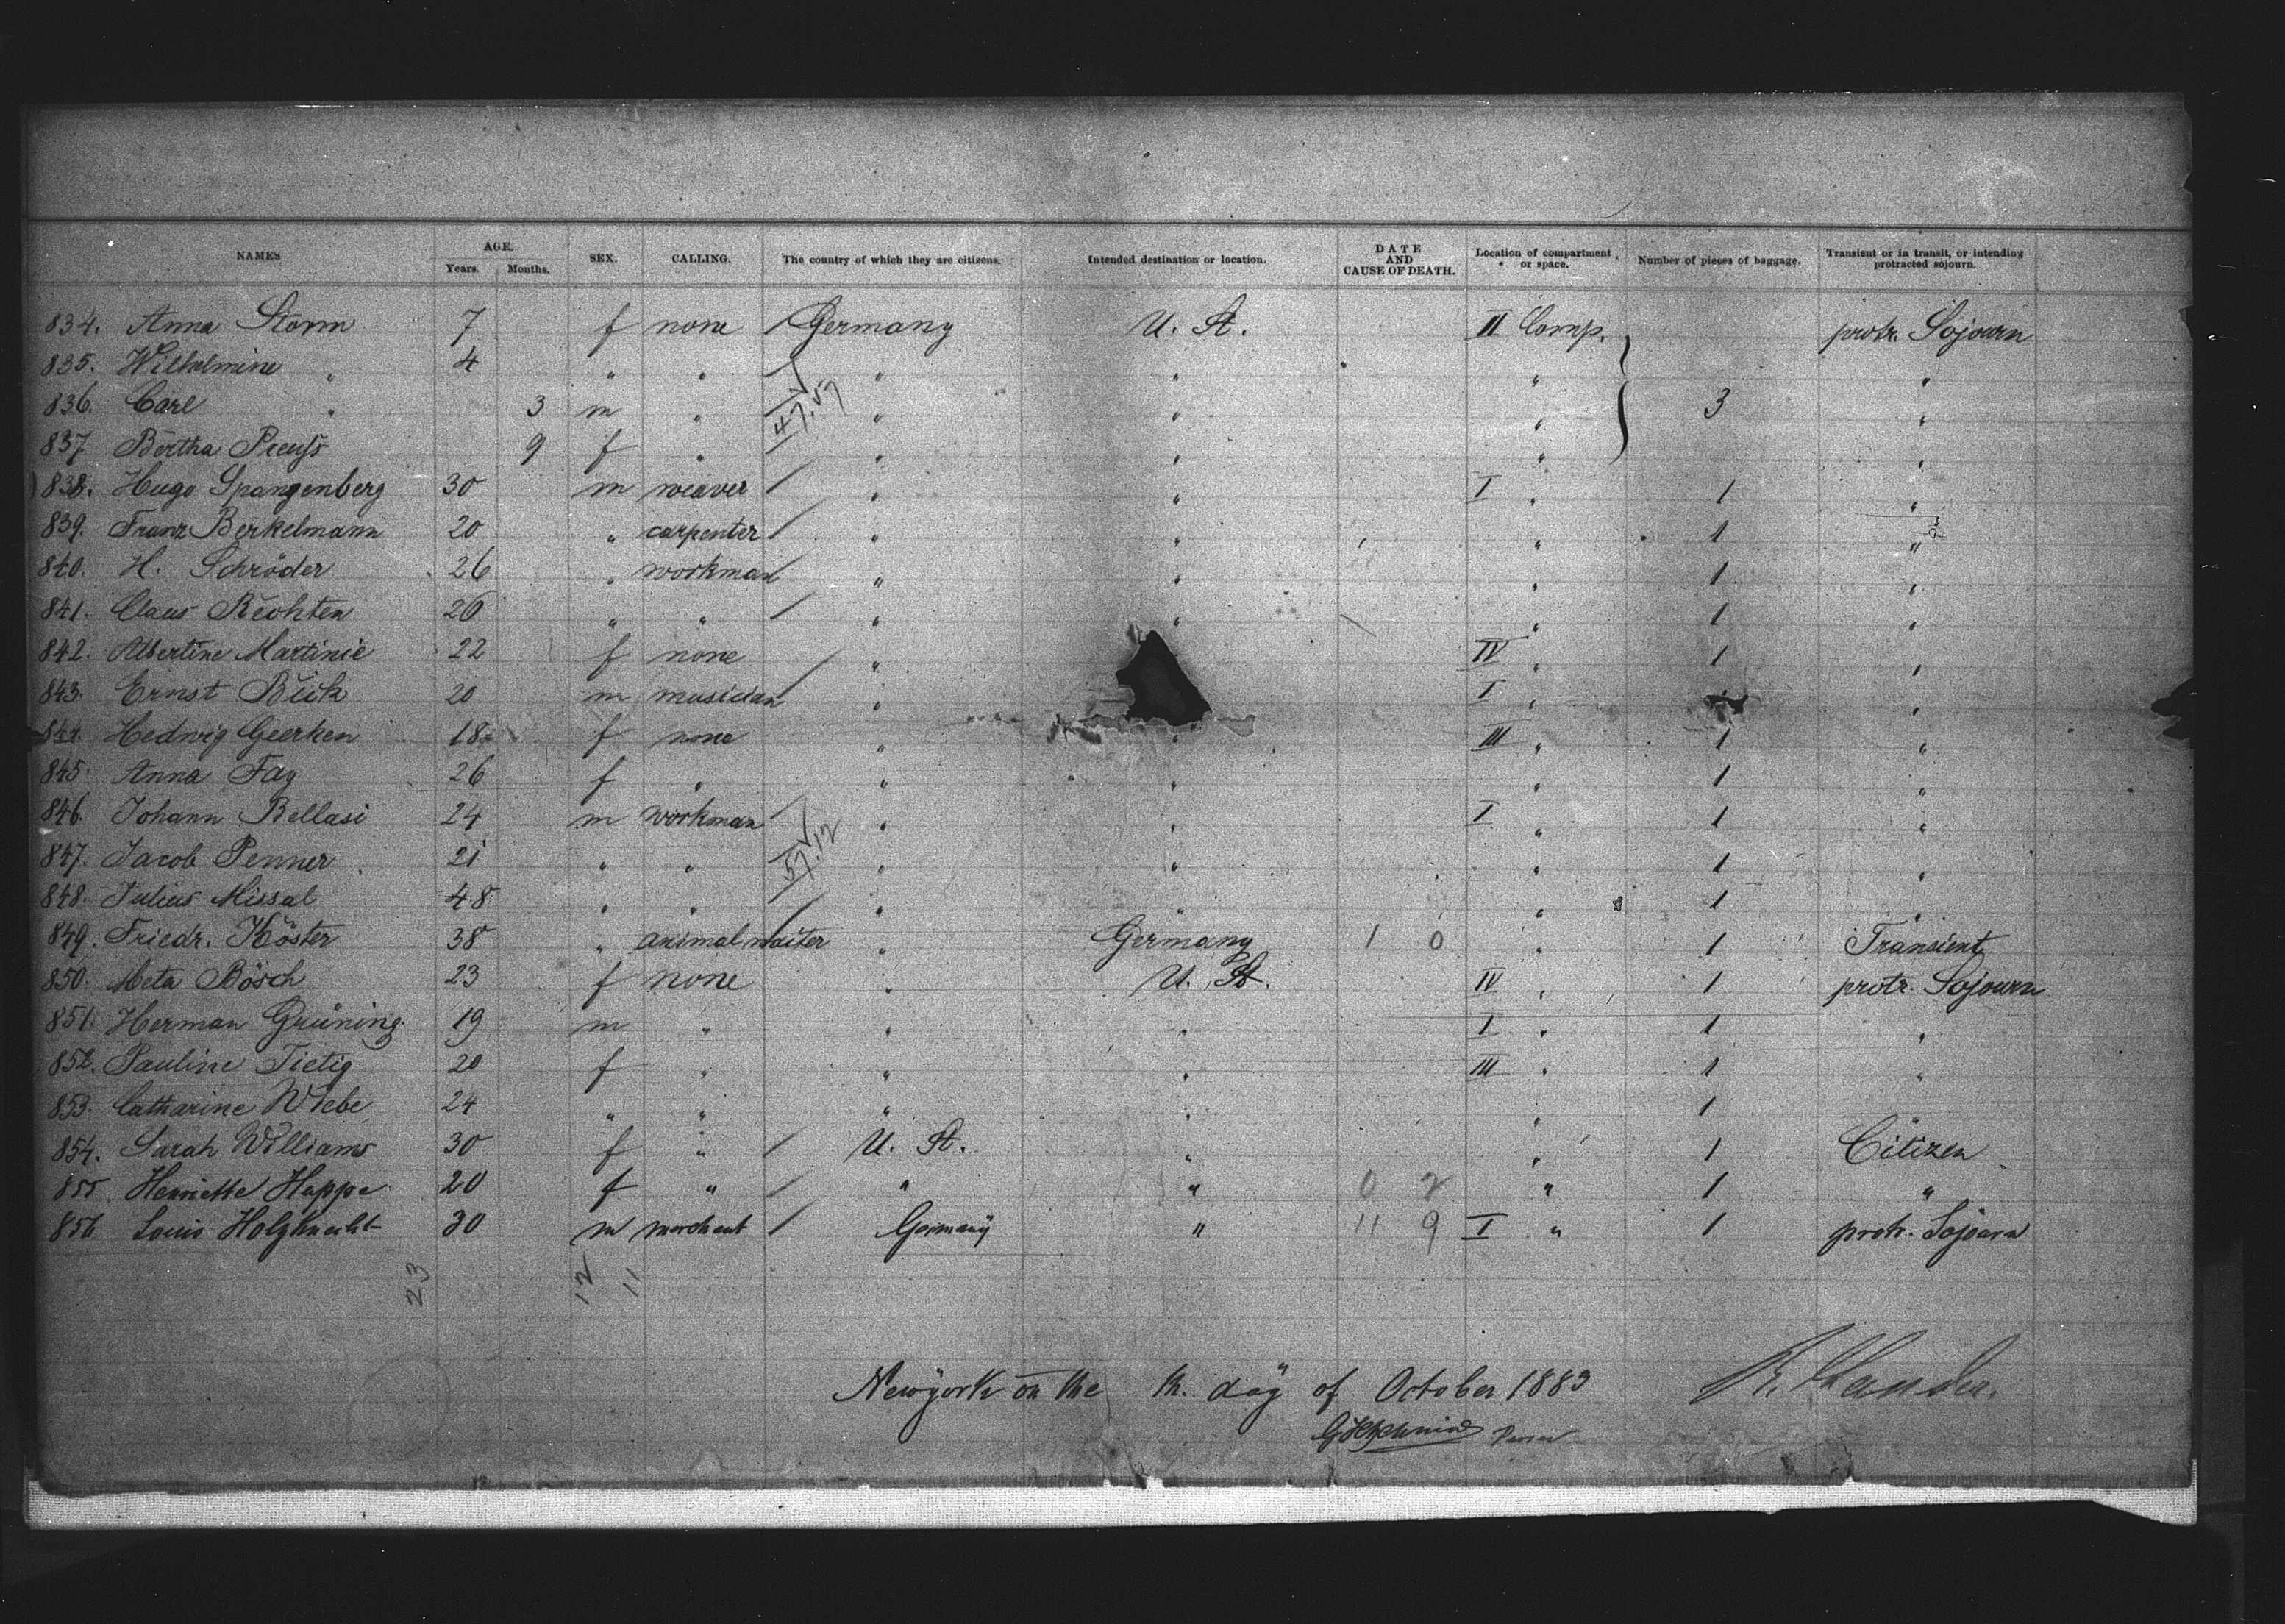 NAMES AGE. Years. Months. SEX. CALLING. The country of which they are citizens. Intended destination or location. DATE AND CAUSE OF DEATH. Location of compartment or space. Number of pieces of baggage. Transient or in transit, or intending protracted sojourn.
834. Anna Storm 7 f none / Germany U. St. II Comp. protr. Sojourn
835. Wilhelmine " 4 " " / " " " "
836. Carl " 3 m " / " " " 3 "
837 Bertha Preuß 9 f " / " " " "
838. Hugo Spangenberg 30 m weaver / " " I " 1 "
839. Franz Berkelmann 20 " carpenter / " " " 1 "
840. H. Schröder 26 " workman / " " " 1 "
841. Claus 26 " " / " " " 1 "
842. Albertine Martinie 22 f none / " IV " 1 "
843. Ernst 20 m musician / " I " "
844. Hedwig Geerken 18 f none " " III " 1 "
845. Anna Fay 26 f " " " " 1 "
846. Johann Bellasi 24 m workman / " " I " 1 "
847. Jacob Penner 21 " " / " " " 1 "
848. Julius Missal 48 " " / " " " 1 "
849. Friedr. Köster 38 " animal waiter / " Germany 1 0 " 1 Transient
850. Meta Bösch 23 f none " U. St. IV " 1 protr. Sojourn
851. Herman Grüning 19 m " " " I " 1 "
852. Pauline Tietig 20 f " " " III " 1 "
853. Catharine Wiebe 24 " " " " " 1
854. Sarah Williams 30 f " / U. St. " " 1 Citizen
855. Henriette Happe 20 f " / " " 0 2 " 1 "
856 Louis Holzknecht 30 m merchant / Germany " 11 9 I " 1 protr. Sojourn
23 12 11
Newyork on the th. day of October 1883